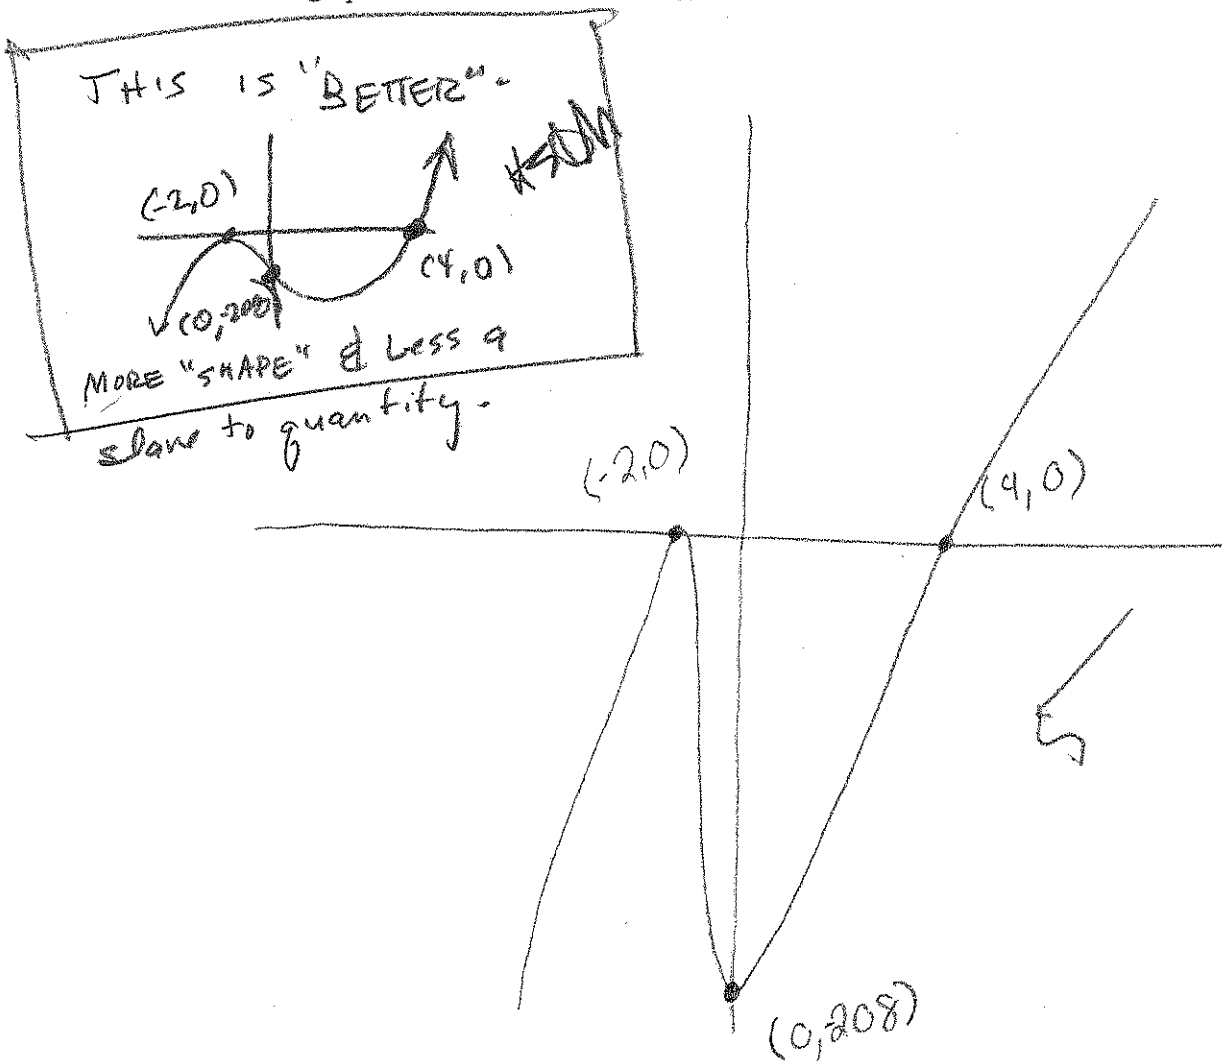 THIS IS "BETTER".
(-2,0)
(4,0)
(0,-208)
MORE "SHAPE" & Less a
slave to quantity.
(-2,0)
(4,0)
5
(0,-208)